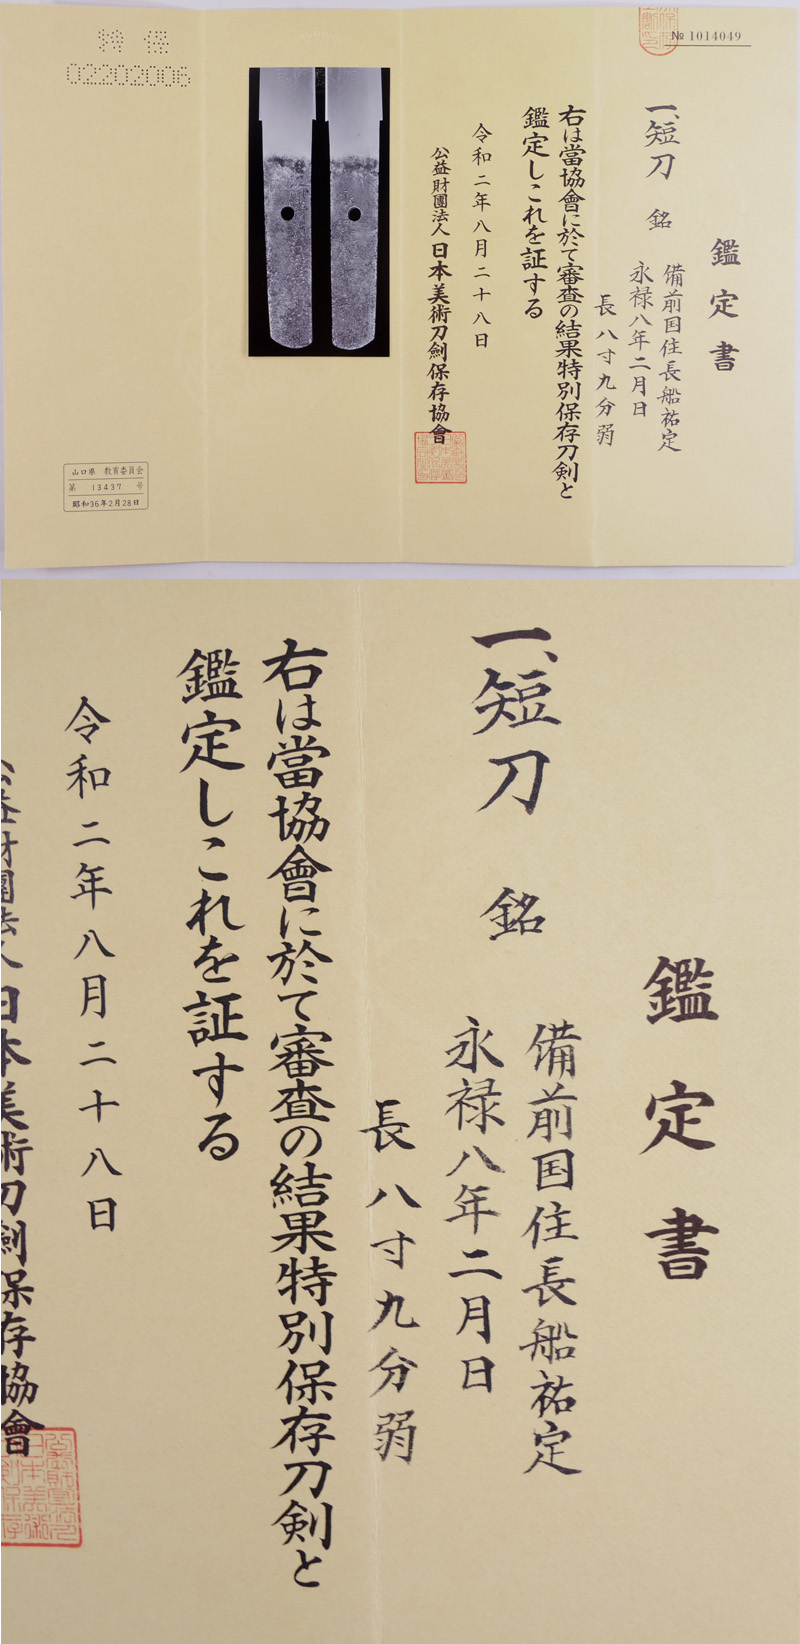 № 1014049
鑑定書
一、短刀 銘 備前国住長船祐定
永禄八年二月日
長八寸九分弱
右は當協會に於て審査の結果特別保存刀剣と
鑑定しこれを証する
令和二年八月二十八日
公益財團法人日本美術刀劍保存協會
特保
02202006
山口県 教育委員会
第 13437 号
昭和36年2月28日
鑑定書
一、短刀 銘 備前国住長船祐定
永禄八年二月日
長八寸九分弱
右は當協會に於て審査の結果特別保存刀剣と
鑑定しこれを証する
令和二年八月二十八日
公益財團法人日本美術刀劍保存協會